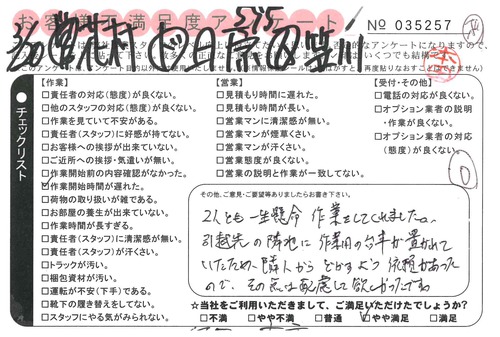 お客様満足度アンケート
No 035257
●チェックリスト
【作業】
□責任者の対応(態度)が良くない。
□他のスタッフの対応(態度)が良くない。
□作業を見ていて不安がある。
□責任者(スタッフ)に好感が持てない。
□お客様への挨拶が出来ていない。
□ご近所への挨拶・気遣いが無い。
□作業開始前の内容確認がなかった。
□作業開始時間が遅れた。
□荷物の取り扱いが雑である。
□お部屋の養生が出来ていない。
□作業時間が長すぎる。
□責任者(スタッフ)に清潔感が無い。
□責任者(スタッフ)が汗くさい。
□トラックが汚い。
□梱包資材が汚い。
□運転が不安(下手)である。
□靴下の履き替えをしてない。
□スタッフにやる気がみられない。
【営業】
□見積もり時間に遅れた。
□見積もり時間が長い。
□営業マンに清潔感が無い。
□営業マンが煙草くさい。
□営業マンが汗くさい。
□営業態度が良くない。
□営業の説明と作業が一致してない。
【受付・その他】
□電話の対応が良くない。
□オプション業者の説明
・作業が良くない。
□オプション業者の対応
(態度)が良くない。
その他、ご意見・ご要望等ありましたらお書き下さい。
2人とも一生懸命作業をしてくれました。
引越先の隣地に作業用の台車が置かれて
いたため、隣人からどかすよう依頼があった
ので、その点は配慮して欲しかったですね
☆当社をご利用いただきまして、ご満足いただけたでしょうか?
□不満 □やや不満 □普通 □やや満足 □満足